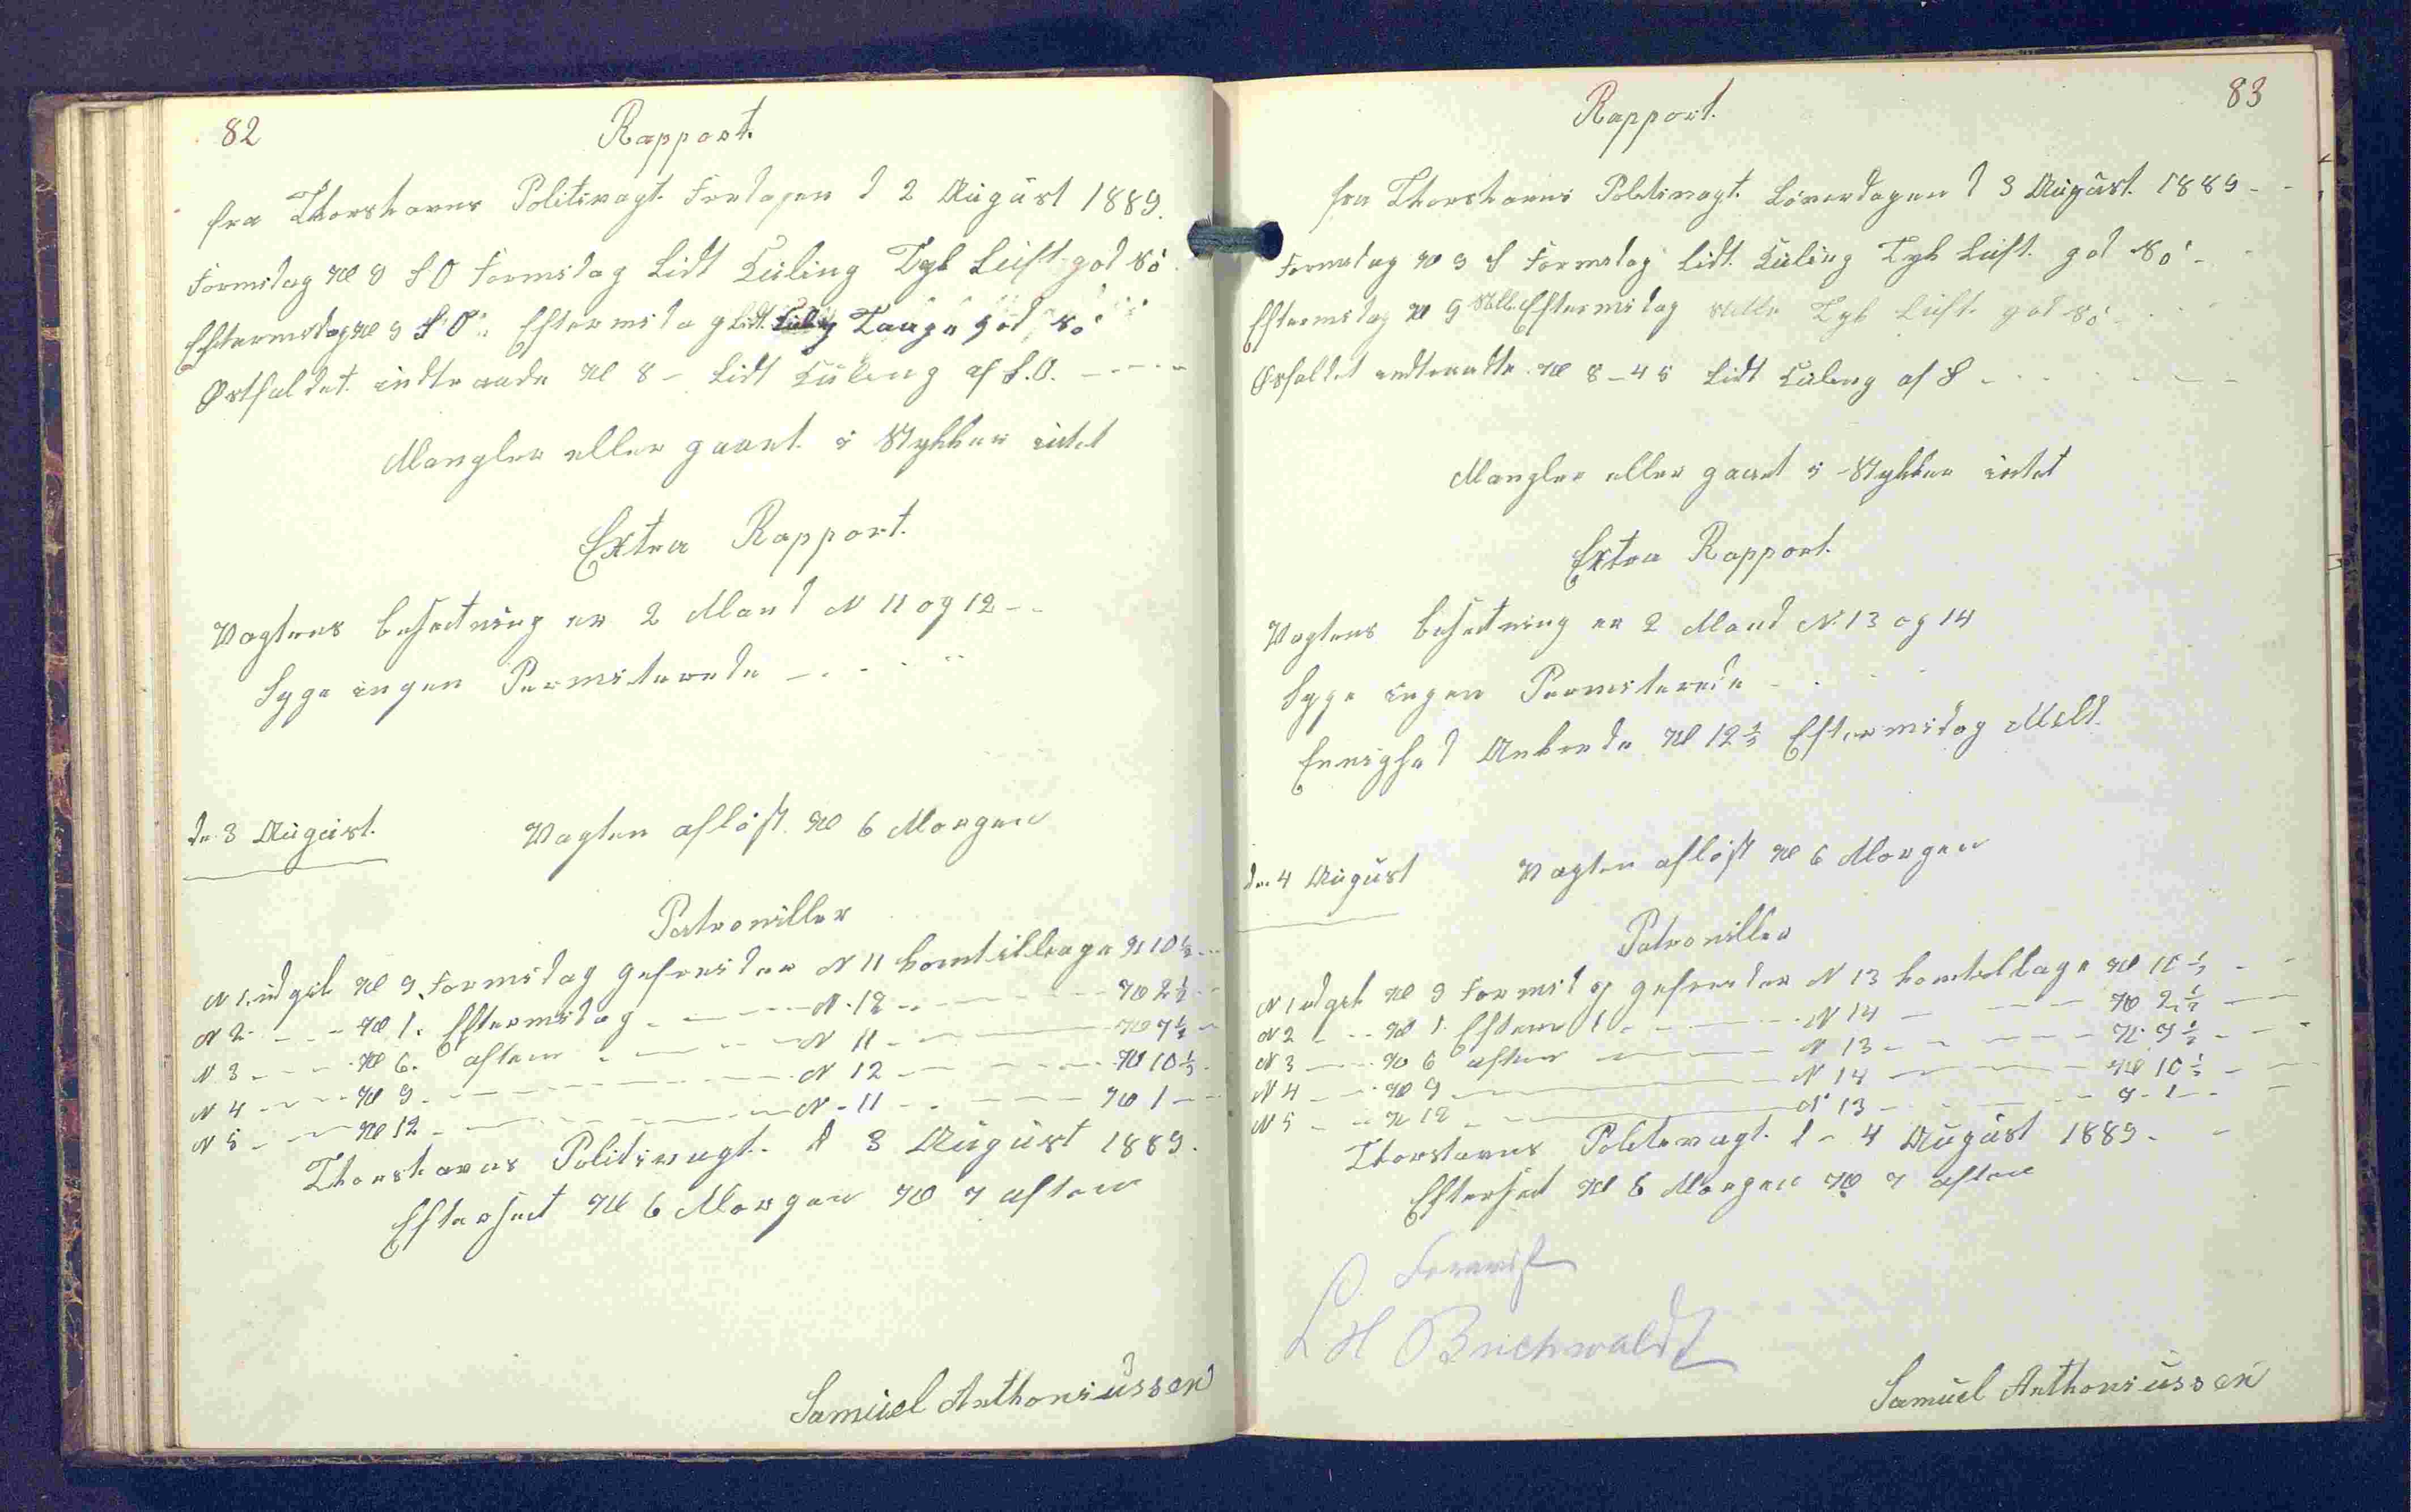 82
Rapport.
fra Thorshavns Politivagt. Fredagen d 2 August 1889.
Formidag Kl 9 S O Formidag Lidt Kuling Tyk Luft god Sö
Eftermidag Kl 9 S O Eftermidag Lidt Kuling Taage god Sö
Østfaldet indtraade Kl 8 - Lidt Kuling af S.O.
Mangler eller gaaet i Stykker intet
Extra Rapport.
Vagtens besætning er 2 Mand N 11 og 12
Syge ingen Permiterede
den 3 August. Vagten aflöst Kl 6 Morgen
Patrouiller
N 1. udgik Kl 9 Formidag gefreider N 11 kom tilbage Kl 10 ½
N 2 - - Kl 1. Eftermidag - - N. 12 - - Kl 2 ½
N 3 - - Kl 6. aften - - N 11 - - Kl 7 ½
N 4 - - Kl 9 - - N 12 - - Kl 10 ½
N 5 - - Kl 12 - - N - 11 - - Kl 1 -
Thorshavns Politivagt. d 3 August 1889.
Efterset Kl 6 Morgen Kl 7 aften
Samuel Anthoniussen
83
Rapport.
fra Thorshavns Politivagt. Löverdagen d 3 August. 1889
Formidag Kl 9 S Formidag Lidt Kuling Tyk Luft. god Sö
Eftermidag Kl 9 Stille Eftermidag Stille Tyk Luft god Sö
Øsfaldet indtraadte Kl 8-45 Lidt Kuling af S
Mangler eller gaaet i Stykker intet
Extra Rapport.
Vagtens besætning er 2 Mand N. 13 og 14
Syge ingen Permiterede
Enighed Ankrede Kl 12 ½ Eftermidag
den 4 August Vagten aflöst Kl 6 Morgen
Patrouiller
N 1 udgik Kl 9 Formidag gefreider N 13 kom tilbage Kl 10 ½
N 2 - - Kl 1. Efterm d - - N 14 - - Kl 2 ½
N 3 - - Kl 6 aften - - N 13 - - Kl. 7 ½
N 4 - - Kl 9 - - N 14 - - Kl 10 ½
N 5 - - Kl 12 - - N 13 - - 1
Thorshavns Politivagt. d - 4 August 1889.
Efterset Kl 6 Morgen Kl 7 aften
Forevist
L H Buchwaldt
Samuel Anthoniussen